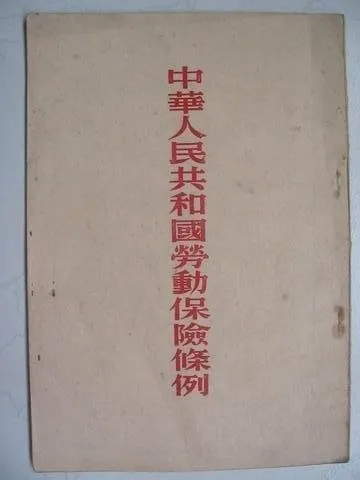 中華人民共和國勞動保險條例